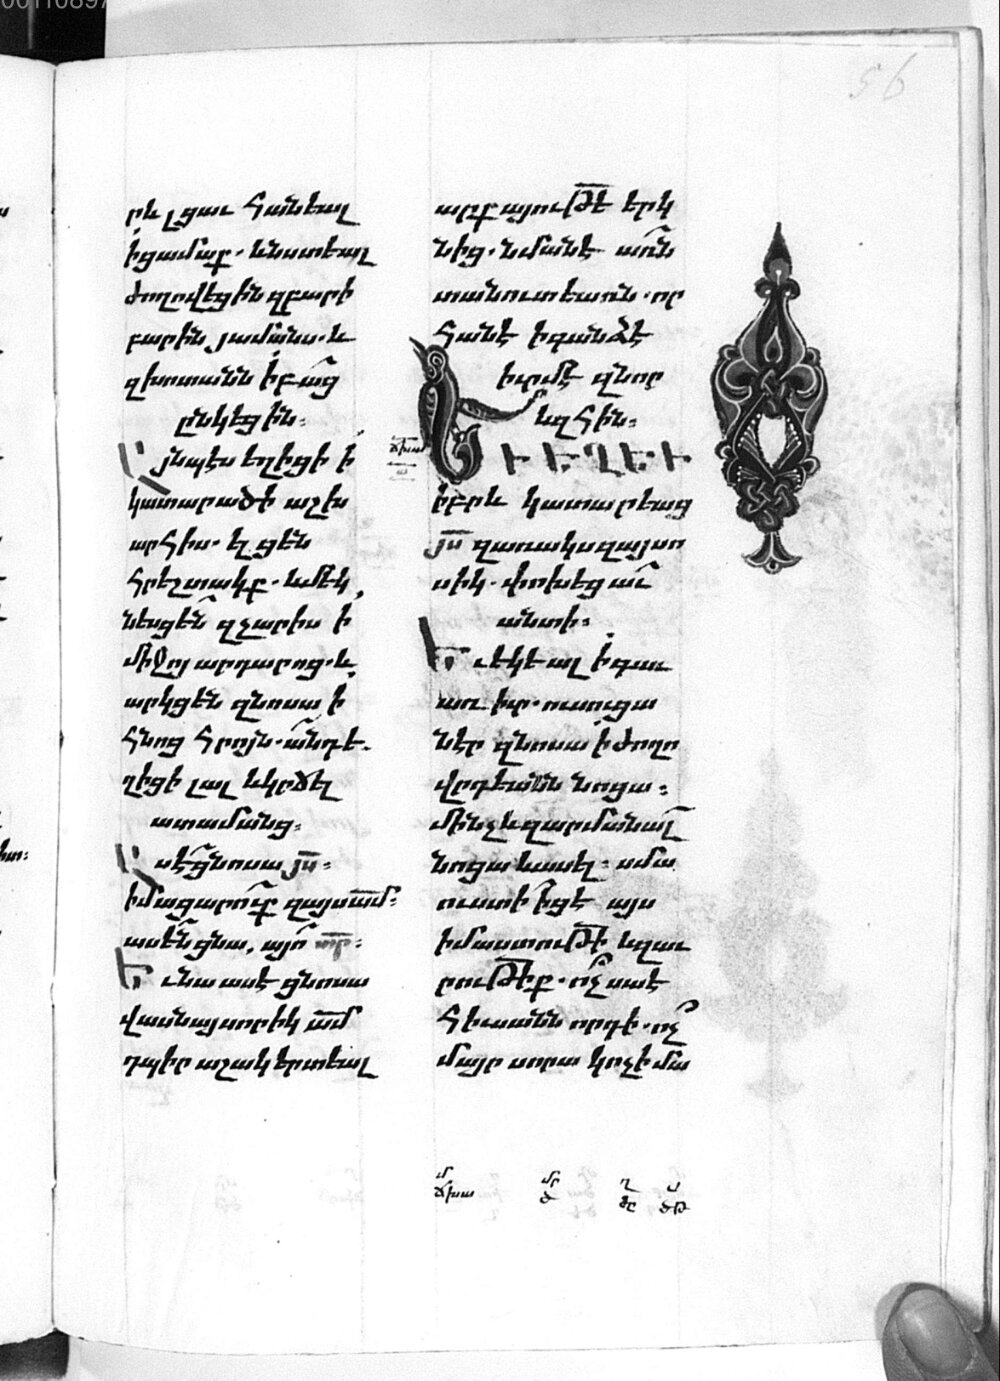 56
րև լցաւ հանեալ
ի ցամաք. և նստեալ
ժողովեցին զբարի
բարին յամանս. և
զխոտանն ի բաց
ընկեցին։
Այնպէս եղիցի ի
կատարածի աշխ
արհիս. ել ցեն
հրեշտակք. և մեկ
նեսցեն զչարիս ի
միջոյ արդարոց. և
արկցեն զնոսա ի
հնոց հրոյն. անդ է
ղիցի լալ և կրճել
ատամանց։
Ասէ ցնոսա յս։
իմացարուք զայս ամ։
ասեն ցնա, այո տր։
Եւ նա ասէ ցնոսա
վասն այսորիկ ամ
դպիր աշակերտեալ
արքայութե երկ
նից. նման է առն
տանուտեառն. որ
հանէ ի գանձէ
իւրմէ զնոր
և զհին։
ՃԽԱ
ԵՒ ԵՂԵՒ
իբրև կատարեաց
յս զառակս զայսո
սիկ. փոխեցաւ
անտի։
Եւ եկեալ ի գաւ
առ իւր. ուսուցա
նէր զնոսա ի ժողո
վրդեանն նոցա։
մինչև զարմանալ
նոցա և ասել. սմա
ուստի իցէ այս
իմաստութի և զաւ
րութիք. ոչ սա է
հիւսանն որդի. ոչ
մայր սորա կոչի մա
Մ
ՃԽԱ
ՄՐ
Ծ
Ղ
Յ